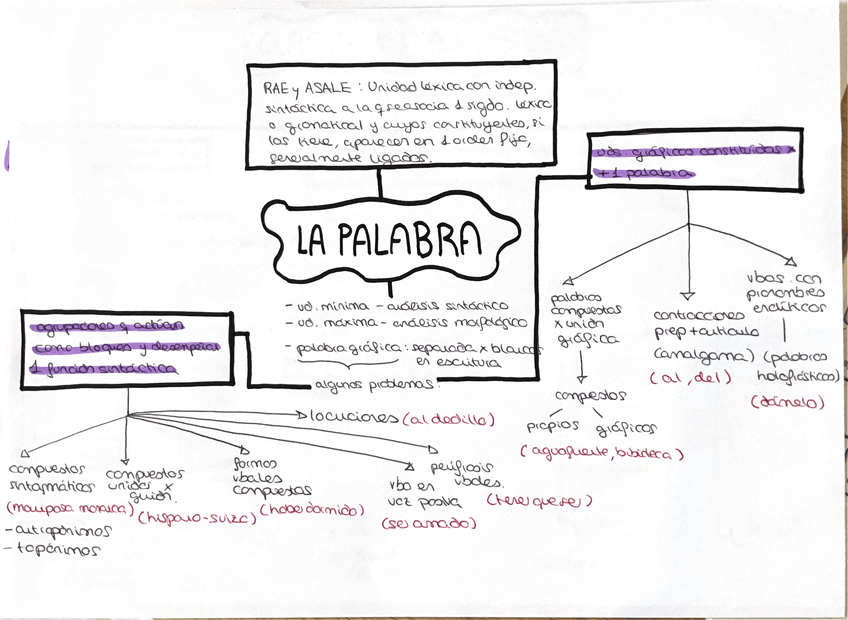 RAE y ASALE : Unidad léxica con indep.
sintáctica a la q se asocia 1 sigdo. léxico
o gramatical y cuyos constituyentes, si
los tiene, aparecen en 1 orden fijo,
generalmente ligados.
LA PALABRA
- ud. mínima - análisis sintáctico
- ud. máxima - análisis morfológico
- palabra gráfica : separada x blancos
en escritura
algunos problemas.
uds gráficas constituidas x
+ 1 palabra
palabras
compuestas
x unión
gráfica
compuestos
propios gráficos
(aguafuerte, bibideca)
contracciones
prep + artículo
(amalgama)
(al, del)
vbos. con
pronombres
enclíticos
(palabras
holofrásticas)
(dámelo)
agrupaciones q actúan
como bloques y desempeñan
1 función sintáctica
compuestos
sintagmáticos
(mariposa monarca)
- antropónimos
- topónimos
compuestos
unidos x
guión.
(hispano-suizo)
formas
vbales
compuestas
(haber dormido)
locuciones (al dedillo)
vbo en
voz pasiva
(ser amado)
perífrasis
vbales.
(tener que ser)